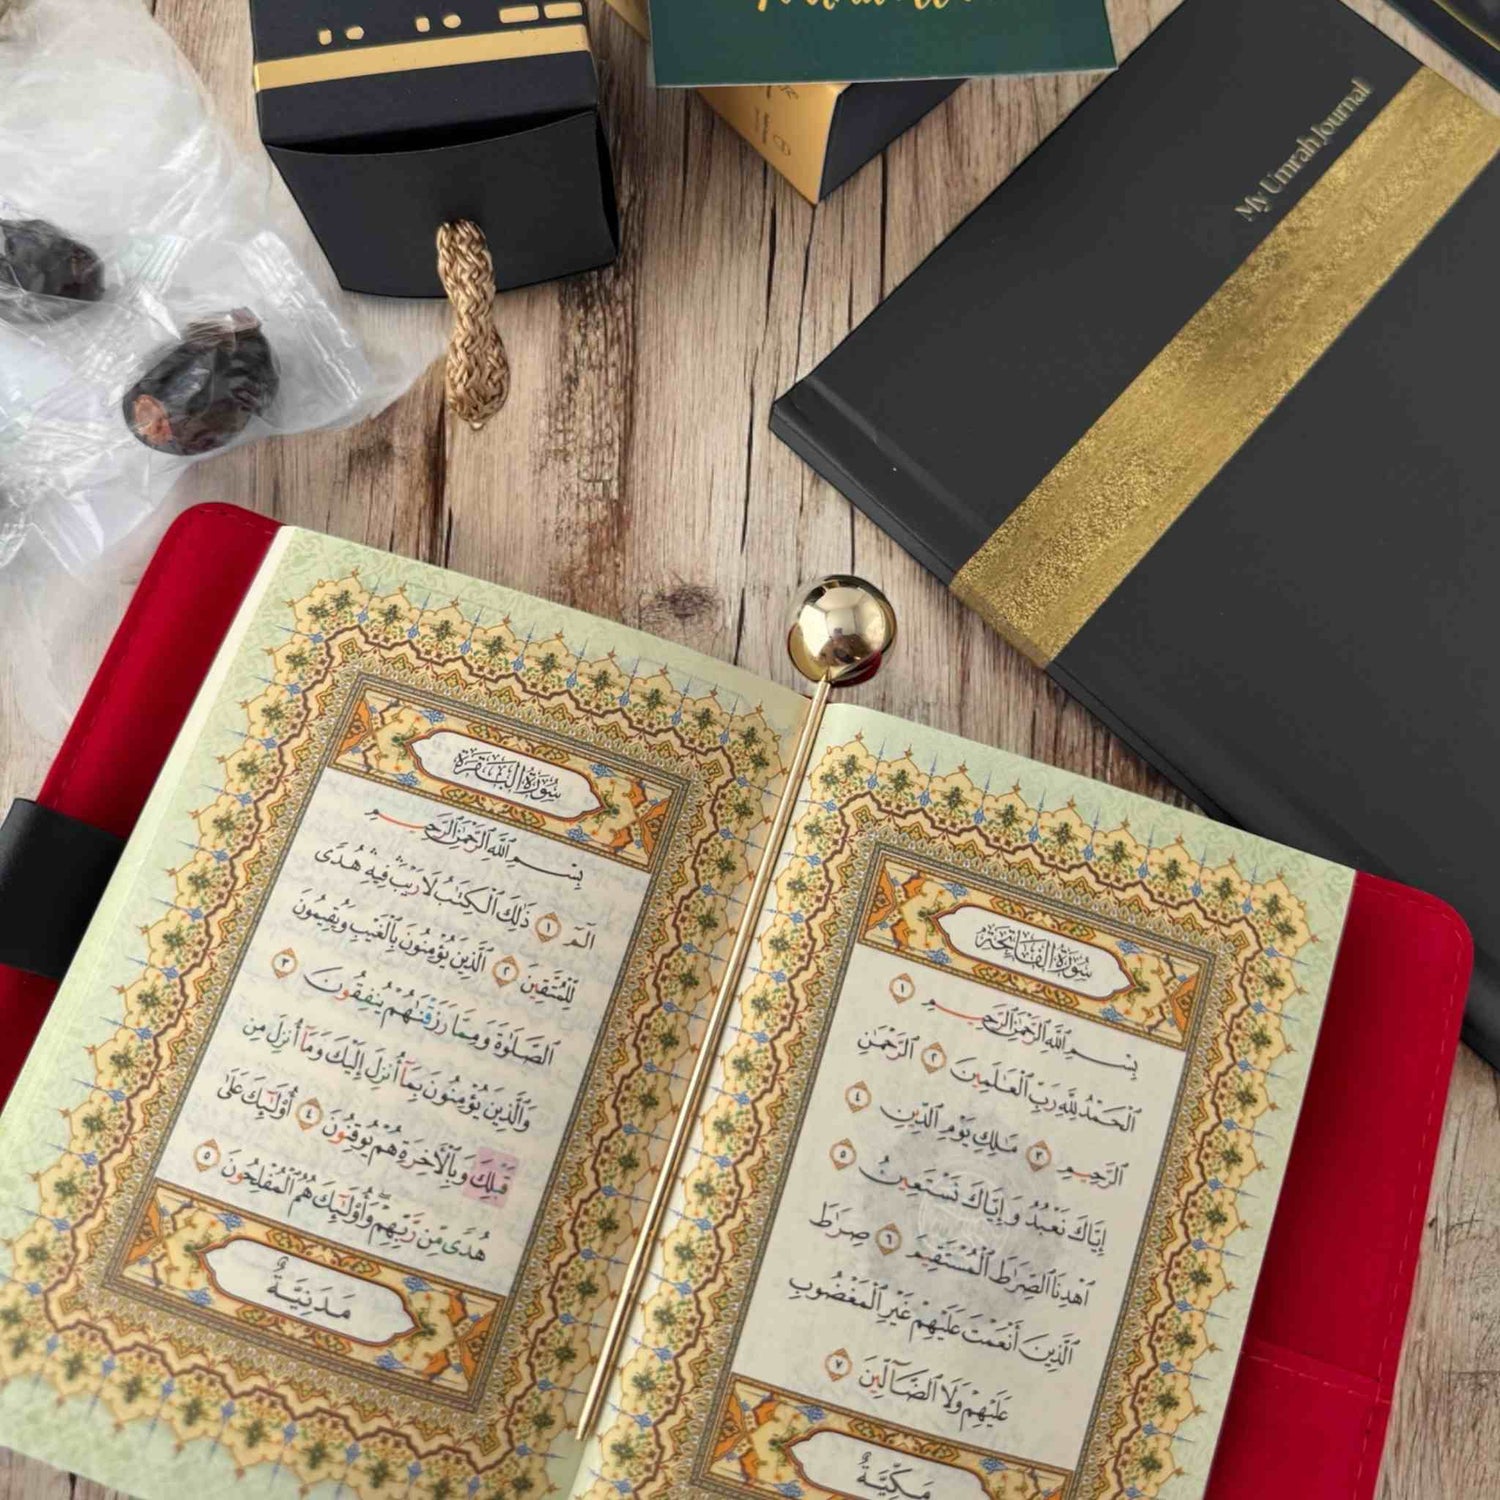 My Umrah Journal
سُورَةُ الفَاتِحَةِ
بِسْمِ ٱللَّهِ ٱلرَّحْمَٰنِ ٱلرَّحِيمِ ١
ٱلْحَمْدُ لِلَّهِ رَبِّ ٱلْعَٰلَمِينَ ٢ ٱلرَّحْمَٰنِ
ٱلرَّحِيمِ ٣ مَٰلِكِ يَوْمِ ٱلدِّينِ ٤
إِيَّاكَ نَعْبُدُ وَإِيَّاكَ نَسْتَعِينُ ٥
ٱهْدِنَا ٱلصِّرَٰطَ ٱلْمُسْتَقِيمَ ٦ صِرَٰطَ
ٱلَّذِينَ أَنْعَمْتَ عَلَيْهِمْ غَيْرِ ٱلْمَغْضُوبِ
عَلَيْهِمْ وَلَا ٱلضَّآلِّينَ ٧
مَكِّيَّةٌ
سُورَةُ البَقَرَةِ
بِسْمِ ٱللَّهِ ٱلرَّحْمَٰنِ ٱلرَّحِيمِ
الٓمٓ ١ ذَٰلِكَ ٱلْكِتَٰبُ لَا رَيْبَ ۛ فِيهِ ۛ هُدًى
لِّلْمُتَّقِينَ ٢ ٱلَّذِينَ يُؤْمِنُونَ بِٱلْغَيْبِ وَيُقِيمُونَ
ٱلصَّلَوٰةَ وَمِمَّا رَزَقْنَٰهُمْ يُنفِقُونَ ٣
وَٱلَّذِينَ يُؤْمِنُونَ بِمَآ أُنزِلَ إِلَيْكَ وَمَآ أُنزِلَ مِن
قَبْلِكَ وَبِٱلْءَاخِرَةِ هُمْ يُوقِنُونَ ٤ أُو۟لَٰٓئِكَ عَلَىٰ
هُدًى مِّن رَّبِّهِمْ ۖ وَأُو۟لَٰٓئِكَ هُمُ ٱلْمُفْلِحُونَ ٥
مَدَنِيَّةٌ